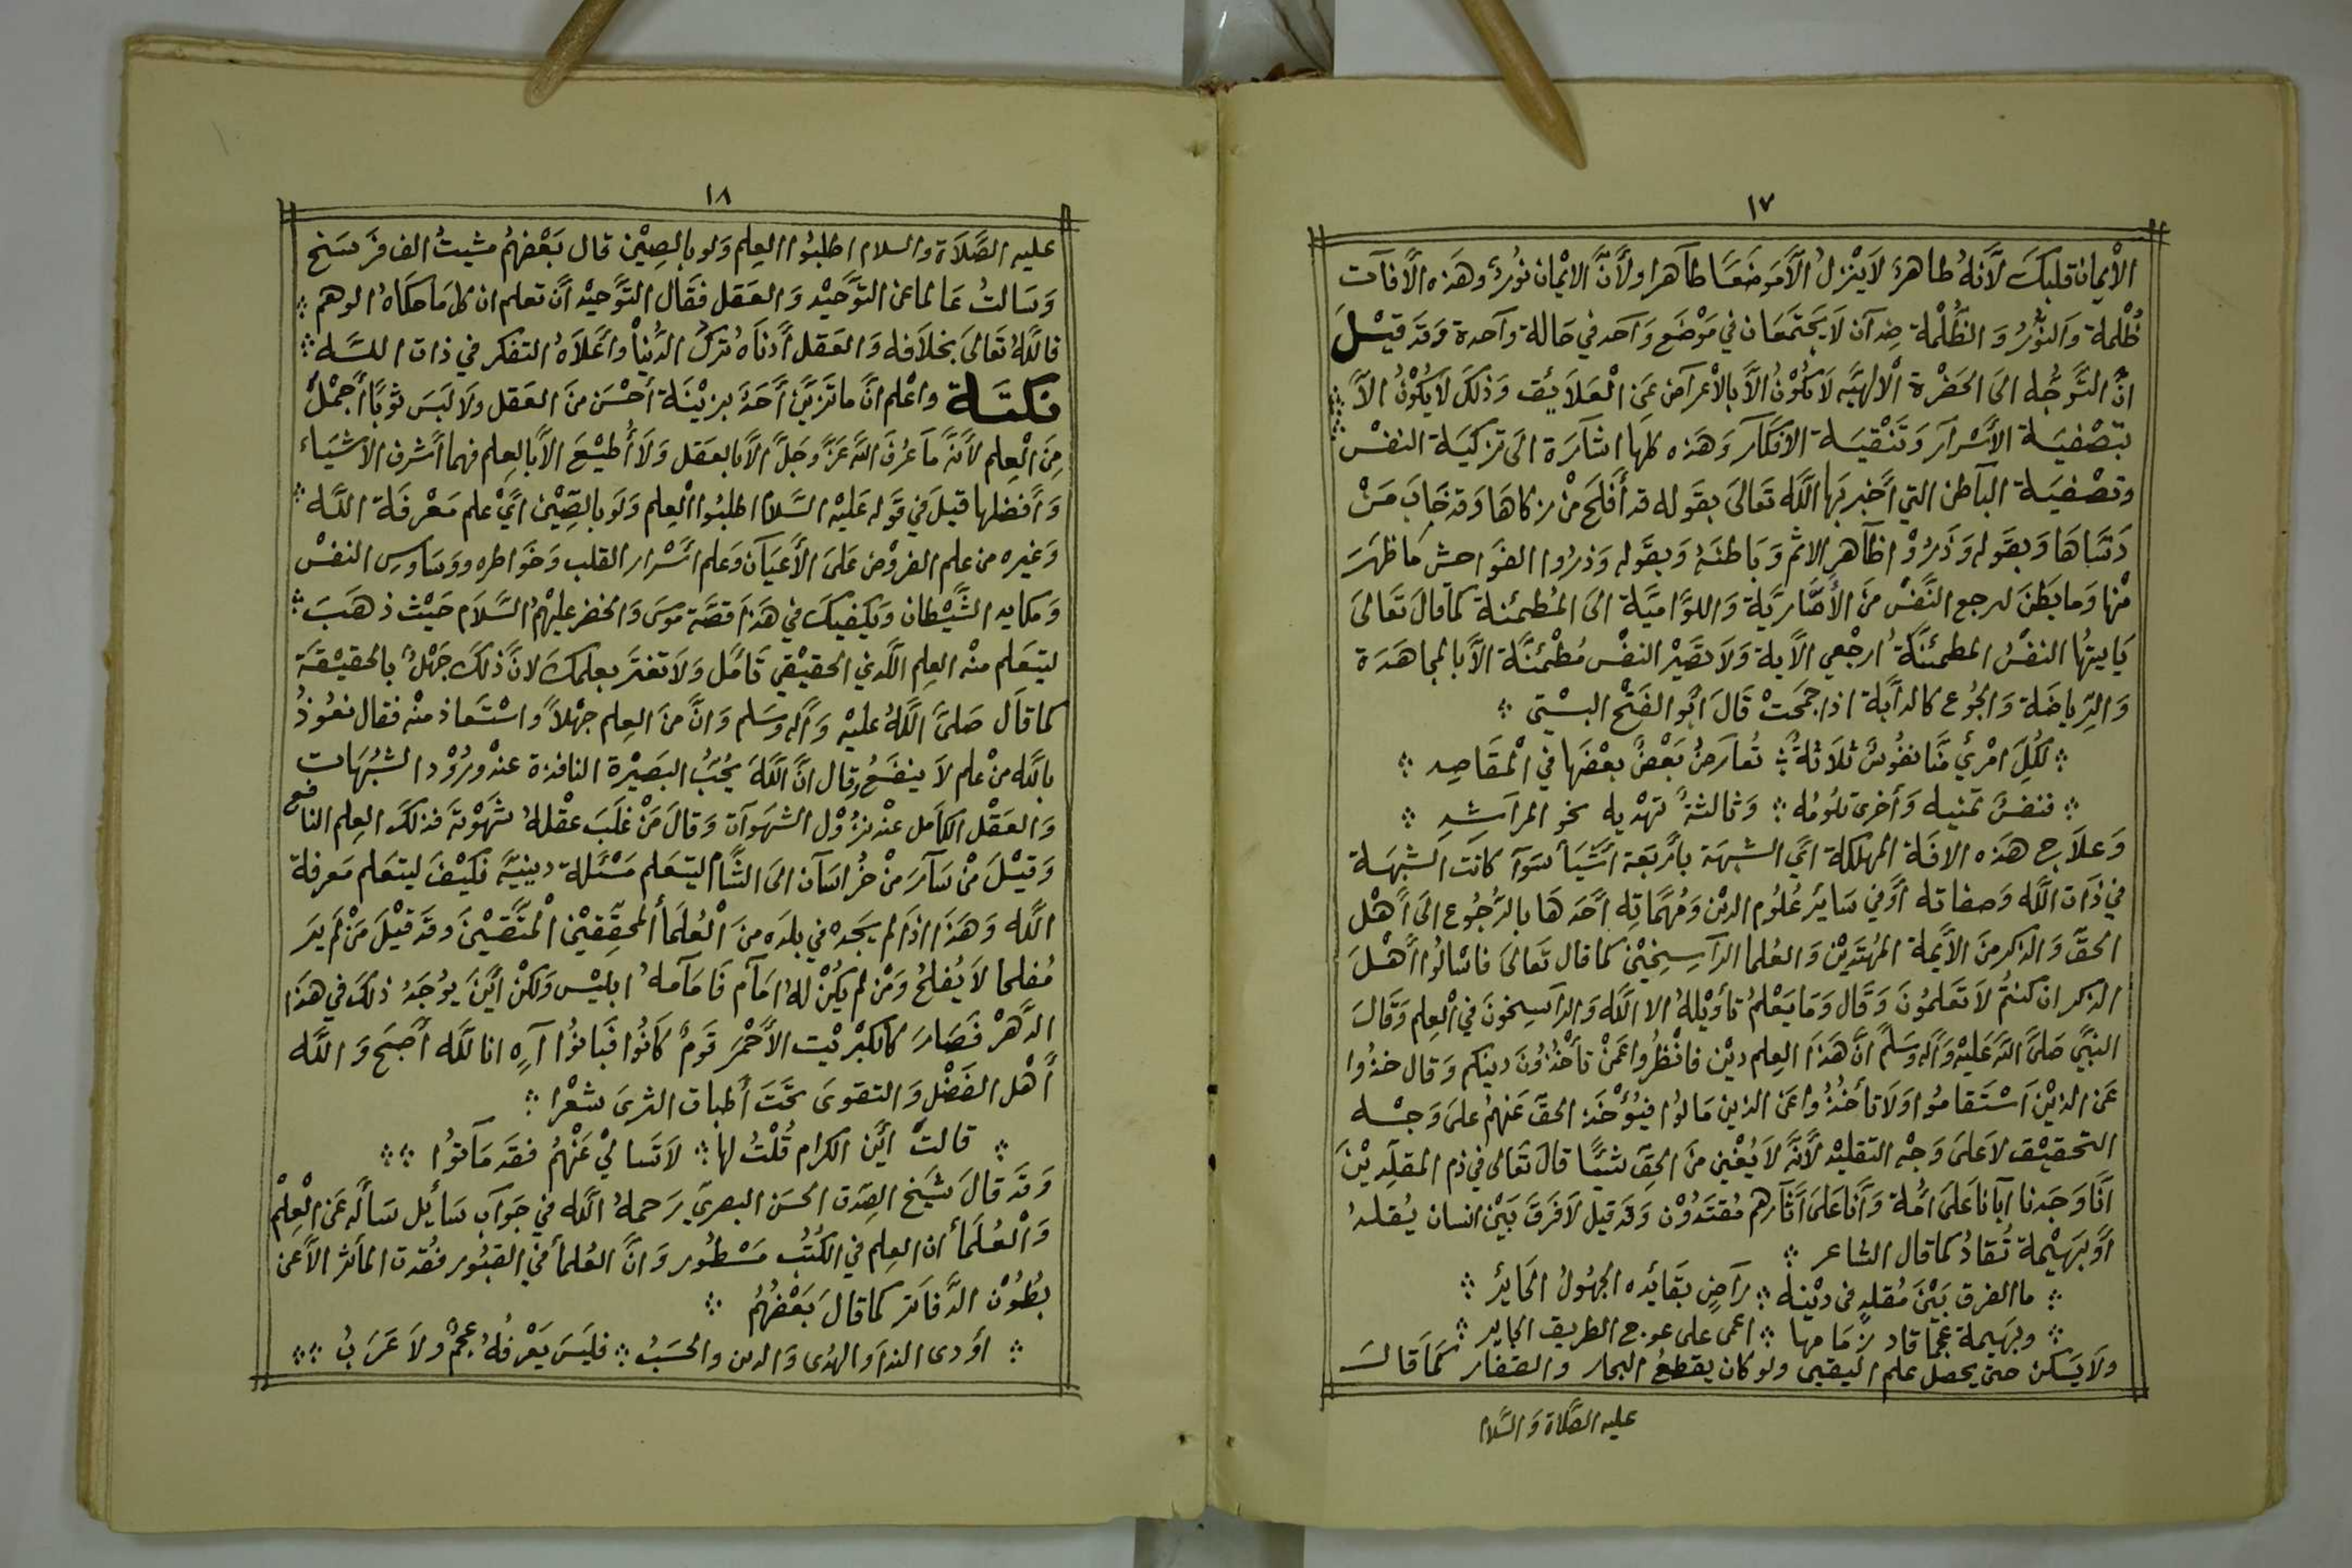 ١٧
الْإيمان قلبك لأنه طاهرة لا ينزل الّا موضعًا طآهرا ولأنّ الايْمان نورٌ وهذه الأفآت
ظُلْمة وَالنّوُرُ وَ الظُّلْمة ضدآن لَا يَجتمَعَان في مَوْضَع وَآحَد في حَالة وآحدة وَقَد قيْلَ
انَّ التَّوجُّه الىَ الحَضْرة الْالهيَّه لَا يكُوْنُ الاَّ بالأعْرَآض عَنِ الْعَلَايُق وَذلكَ لَا يَكوْنُ الاَّ
بتَصْفيَة الأَسْرآر وَتَنْقيَة الافكآر وَهَذه كلهَا اشآرَة الىَ تزكيَة النفسْ
وتصْفيَة البآطن التي أَخبر بَهَا اللّه تَعَالىَ بقَوله قد أَفلحَ منْ زكاهَا وَقد خَابَ مَنْ
دَسَّاهَا وَبقوله وَذَرُوْا ظآهر الاثم وَبَاطنَهُ وَبقَوله وَذرُوا الفوَاحش مَا ظهَرَ
منْها وَما بطَنَ لترجع النَّفسْ منَ الأَمَّاريَّة وَاللوَّاميَّة الىَ المُطمئنة كماَ قالَ تَعَالىَ
يَا ايتهُا النفسُ المطمئنّةُ ارجْعي الأَية وَلاَ تصَيْر النفسْ مُطْمئنَّة الاَّ بالمجاهَدَة
وَالرِّيَاضَة وَالجُوع كالدآبَّة اذا جمحَتْ قَالَ أَبُو الفَتْح البسْتي
لكُلِّ امْريءٍ منَّا نفوُسٌ ثلَاثةٌ تُعارَضُ بَعْضٌ بعْضَها في الْمقَاصِدِ
فنفسٌ تمنيه وَأخرىَ تلوُمُه وَثالثةٌ تهْديه نحو المرآشدِ
وَعلاَج هَذه الافَة المهلكة اَيّ الشبهَة بأربَعَة أشيَأ سَوآ كانَت الشبهَة
في ذَات اللّه وَصفاته أَوْ في سَايَرْ عُلوُم الدينْ وَمُهمَّاتِه أحَدَهَا بالرُّجُوع الىَ أهْل
الحقّ وَالذكر منَ الأَيمة المهْتَديْن وَالعُلما الرآسِخِيْنَ كما قال تَعَالىَ فاسْألوُا أهْلَ
الذكر ان كنتمْ لاَ تَعْلموُنَ وَقال وَمَا يَعْلمُ تأويْلهُ الا اللّه وَالرآسِخونَ في الْعِلم وَقَالَ
النبيَّ صَلىَّ اللّه عَليْه وَآله وَسَلمَ انَّ هَذا العِلم ديْن فانْظرُوا عَمَّنْ تأخُذوُنَ دينكم وَقال خذوُا
عَن الذيْنَ اسْتَقامُوا وَلَا تأخُذوُا عَن الذين مَالوُا فيُؤْخَذ الحقّ عَنهمُ علىَ وَجْه
التحقيْق لاَ علىَ وَجْه التقليْد لأَنَّه لَا يُغْنيِ منَ الحقّ شيئًا قالَ تَعَالى في ذم المقلديْنَ
انّا وَجَدنا آبآنا علىَ امَّة وَانّا علىَ آثآرهم مُقتَدُوْن وَقد قيل لاَ فرق بَيْن انسان يُقلد
أوْ بَهيْمة تُقادُ كما قال الشاعر
ما الفرق بَيْنَ مُقلدٍ في ديْنه رَآضٍ بقَآئده الجهُولُ الحَايرِ
وبهَيمة عجما قاد زمَامها اعمى على عوج الطريق الجاير
ولَا يَسكن حتى يحصل علم اليقيى ولو كان يقطعُ البحار والقفار كمَا قالَ
عليه الصَّلاة وَالسَّلام
١٨
عليه الصَّلاَة والسلام اطلبُوا العِلم وَلو بالصِيْن قال بَعْضهُم مشيتُ الف فَرسَخ
وَسَالتُ عَالما عن التوَّحيْد وَالعَقل فقَال التَّوحيْد أن تعلم ان كل مَا حكَاهُ الوهم
فاللّه تَعَالىَ بخلاَفه وَالعَقل أَدنَاهُ تركُ الدُّنيا وأعَلاَهُ التفكر في ذات اللّه
نكتَة واعْلم انَّ ما تَزيَّنَ أَحَدٌ بزيْنَة أحْسَن منَ العَقل وَلَا لبَسَ ثوبًا أَجمْل
مِنَ الْعِلم لأنَّه مَا عُرفَ اللّه عَزَّ وَجَلّ الاَّ بالعَقل وَلاَ أُطيْعَ الاَّ بالعِلم فهما أشرف الاشيَاء
وَأَفضلها قيلَ في قوله عَليْه السَّلام اطلبُوا الْعِلم وَلَو بالصِّيْن اَيْ علم مَعْرفَة اللّه
وَغيره من علم الفروْض عَلىَ الأعيَان وَعلم أسْرار القلب وَخوَاطره ووَسَاوسِ النفسْ
وَمكايد الشَّيْطان وَيكفيكَ في هَذا قصَّة موسىَ وَالخضر عليهْمُ السَّلاَم حَيْث ذهَبَ
ليتعَلم منْه العِلم اللَّدني الحقيْقي تَأمَّل وَلاَ تغترَّ بعلمكَ لانَّ ذلكَ جَهْلٌ بالحقيْقَة
كما قَال صَلىَّ اللّهُ عليْه وَآله وَسَلم وَانَّ منَ العِلم جهْلاً وَاسْتَعاذ منْه فقال نعُوذُ
باللّه منْ علم لاَ ينفَعُ وقال انَّ اللّهَ يُحبُّ البَصيْرة النافذة عنْد ورُوْد الشبُهَات
وَالعَقْل الكامل عنْد نزُوْل الشهَوآت وَقالَ مَنْ غلَبَ عقْلهُ شهْوَتهَ فذلكَ العِلم النافع
وَقيْلَ منْ سَآرَ منْ خرُاسَآن الىَ الشَّام ليتعَلم مَسْئلة دينيَّة فكيْفَ ليتعَلم مَعرفة
اللّه وَهَذا اذَا لم يَجدْه في بلده منَ الْعُلمَأ المحقِّقيْن الْمتَّقيْنَ وَقَد قيْلَ مَنْ لمَ يَرَ
مُفلحا لاَ يُفلحُ وَمْن لم يكُنْ لهُ امَآم فَامَآمهُ ابليْس وَلكنْ أيْنَ يوُجَدُ ذلكَ في هذا
الدَّهْر فصَارَ كالكبْريْت الأَحْمَر قَومٌ كَانُوا فَبَانوُا آه انا للّه أصْبَح وَاللّه
أهْل الفَضْلِ وَالتقوىَ تحَتَ أطباق الثرىَ شعْرا
قالتْ أيْن الكرام قُلْتُ لها لاَ تَسَاليْ عَنْهُم فقَد مَاتوُا
وَقَد قالَ شيْخ الصِّدق الحسَن البصري رَحمهُ اللّه في جَوَآب سَأيل سَألَه عَن الْعِلمْ
وَالْعُلَمأ ان العِلم في الكُتُب مَسْطوُر وَانَّ العُلمأ في القبُور فقُدت المأثر الاَّ عن
بُطُوْن الدَّفاَتر كما قالَ بَعْضهُم
اوْدى الندَا والهدى وَالدين والحسَبُ فليَسَ يَعْرفُهُ عجمٌ ولاَ عَرَبُ